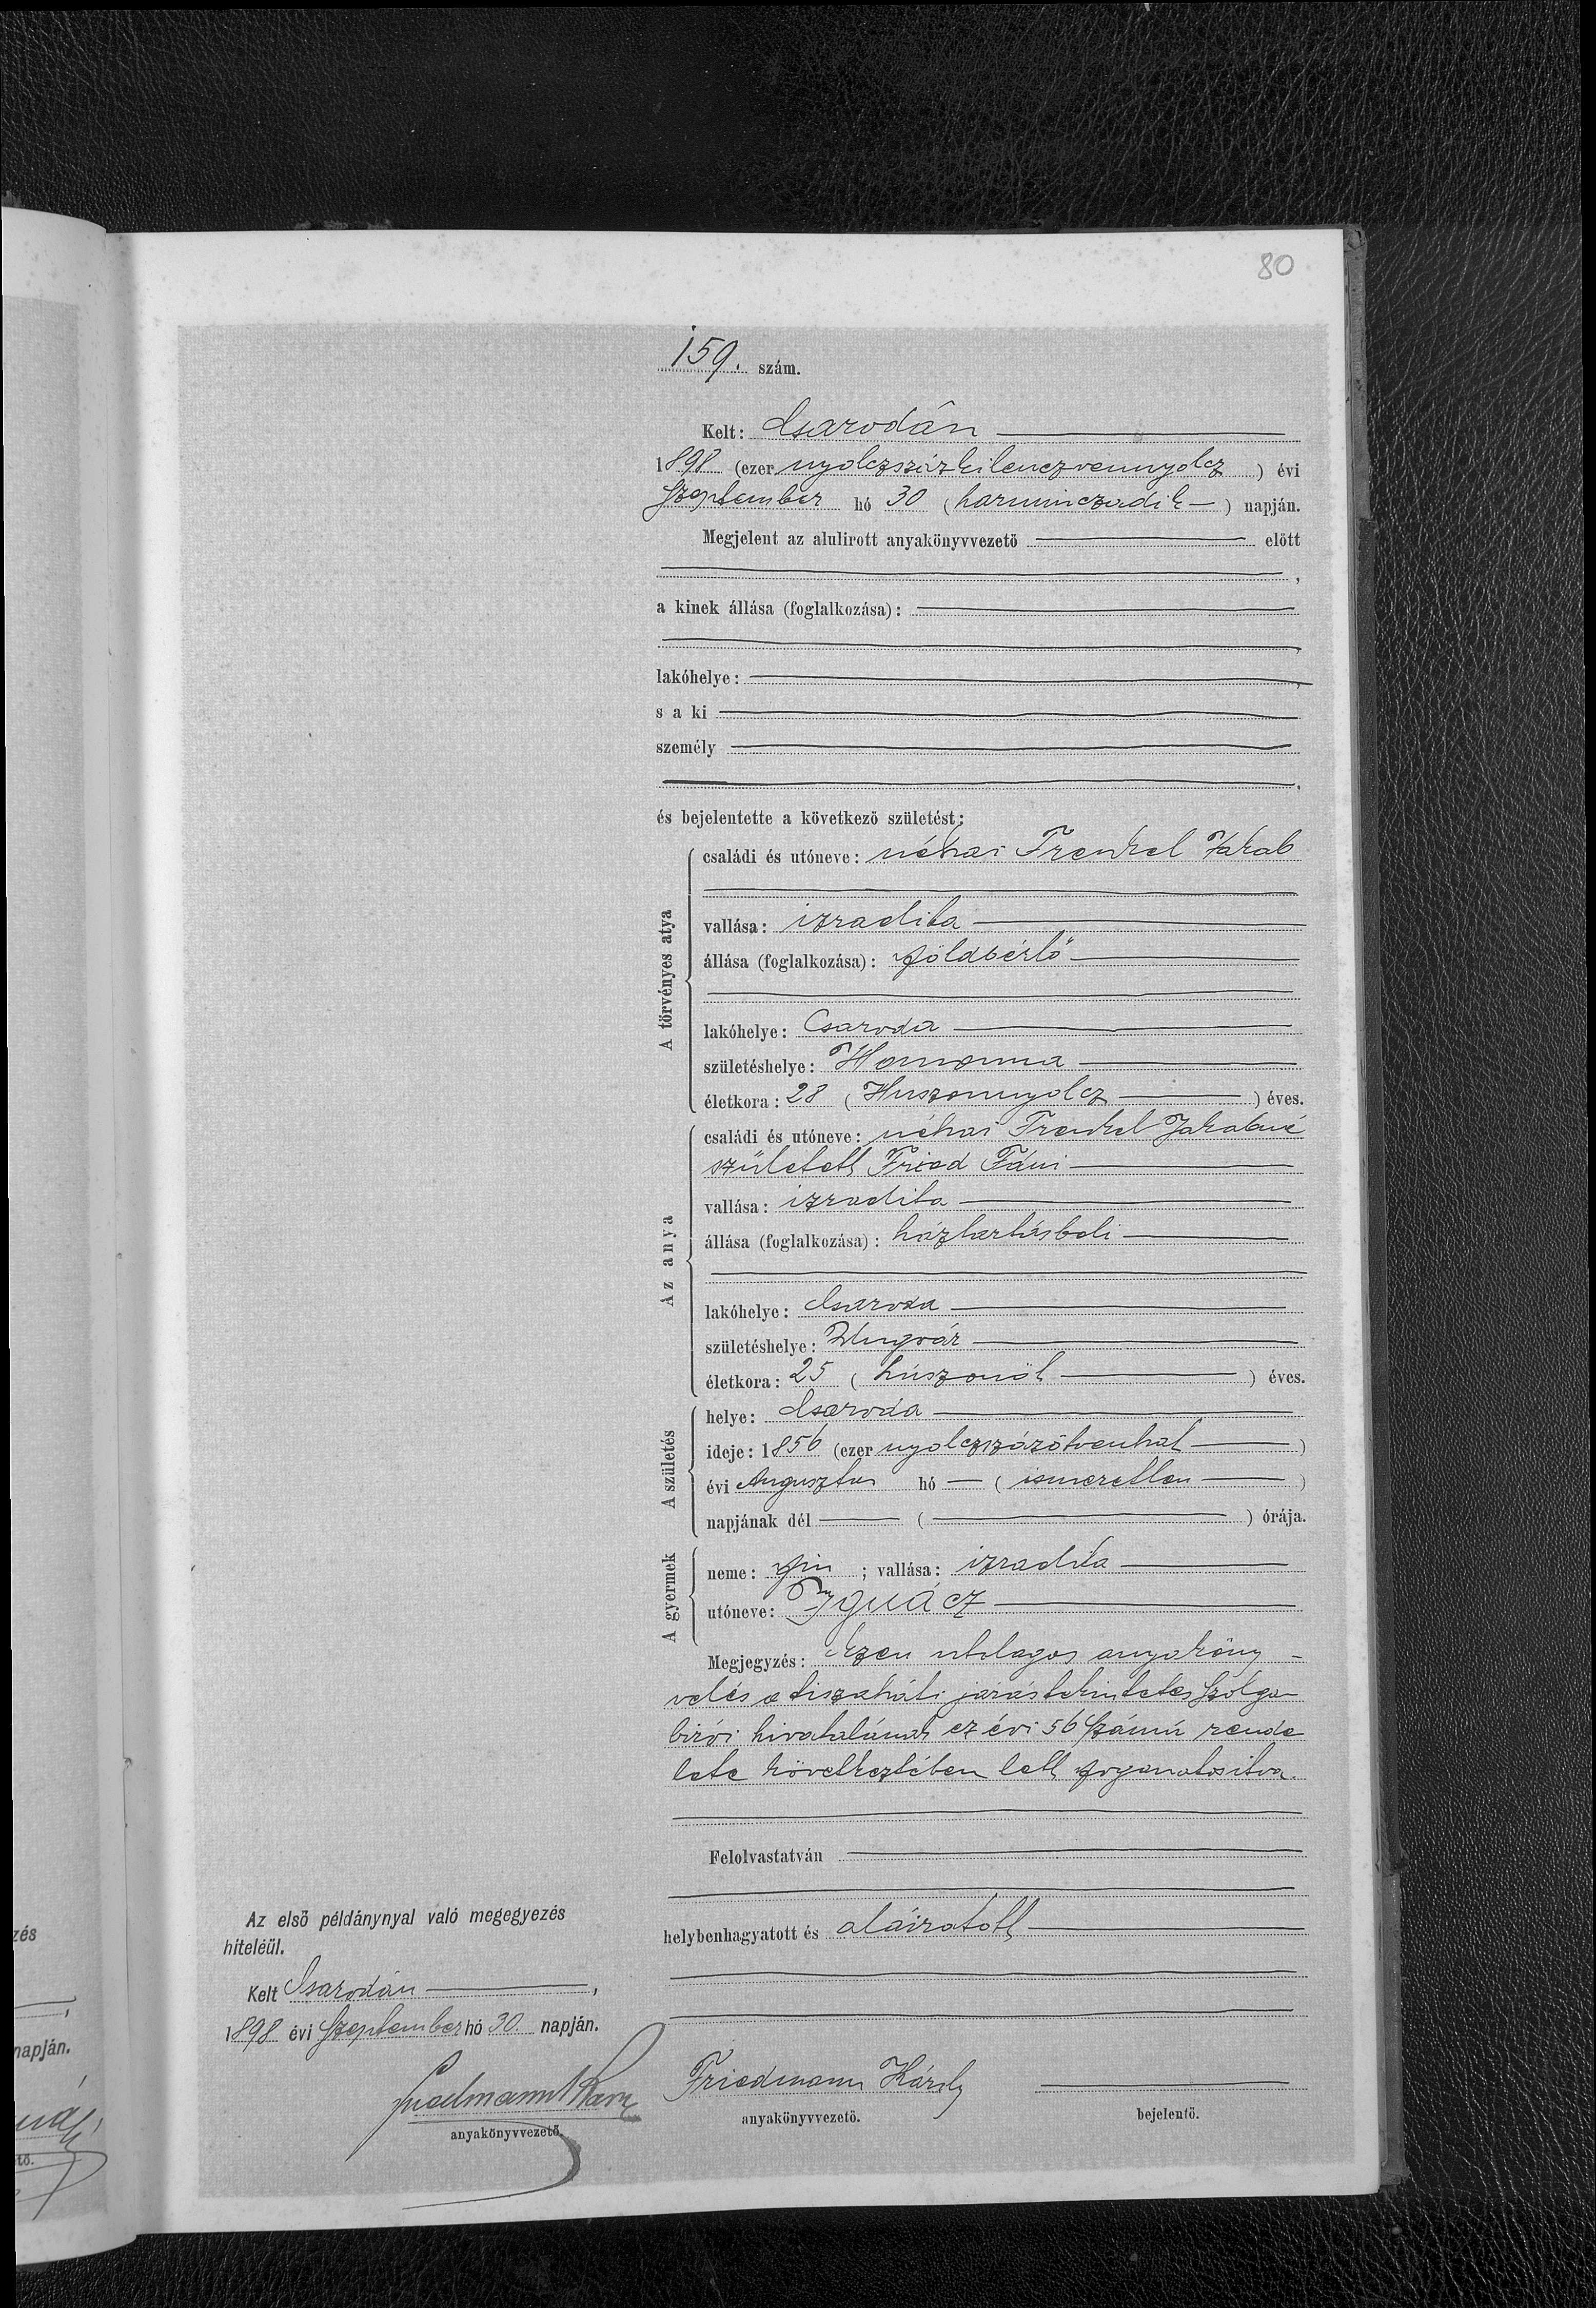 80
159. szám.
Kelt: Csarodán
1898 (ezer nyolczszázkilenczvennyolcz) évi
Szeptember hó 30 (harminczadik) napján.
Megjelent az alulirott anyakönyvvezető előtt
,
a kinek állása (foglalkozása):
lakóhelye:
s a ki
személy
és bejelentette a következő születést:
A törvényes atya
családi és utóneve: néhai Frenkel Jakab
vallása: izraelita
állása (foglalkozása): földbérlő
lakóhelye: Csaroda
születéshelye: Homonna
életkora: 28 (Huszonnyolcz) éves.
Az anya
családi és utóneve: néhai Frenkel Jakabné
született Fried Fáni
vallása: izraelita
állása (foglalkozása): háztartásbeli
lakóhelye: Csaroda
születéshelye: Ungvár
életkora: 25 (húszonöt) éves.
A születés
helye: Csaroda
ideje: 1856 (ezer nyolczszázötvenhat)
évi Augusztus hó — (ismeretlen)
napjának dél ( ) órája.
A gyermek
neme: fiu ; vallása: izraelita
utóneve: Ignácz
Megjegyzés: Ezen utólagos anyaköny-
velés a tiszaháti járás tekintetes Szolga
birói hivatalának ez évi 56 számú rende
lete következtében lett foganatositva.
Felolvastatván
helybenhagyatott és aláiratott
Az első példánynyal való megegyezés
hiteléül.
Kelt Csarodán,
1898 évi Szeptember hó 30 napján.
Friedmann Károly
anyakönyvvezető.
Friedmann Károly
anyakönyvvezető.
bejelentő.
zés
napján.